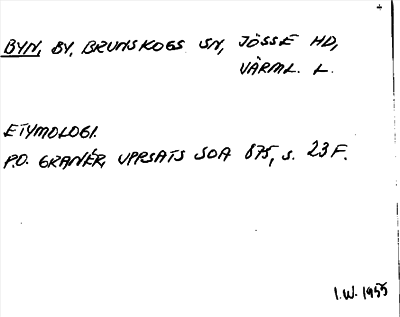 BYN, BY, BRUNSKOGS SN, JÖSSE HD,
VÄRML. L.
ETYMOLOGI.
P.O. GRANÉR, UPPSATS SOA 875, S. 23 F.
I.W. 1955